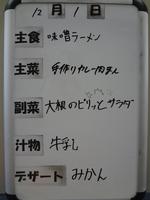 12月1日
主食 味噌ラーメン
主菜 手作りカレー肉まん
副菜 大根のピリッとサラダ
汁物 牛乳
デザート みかん